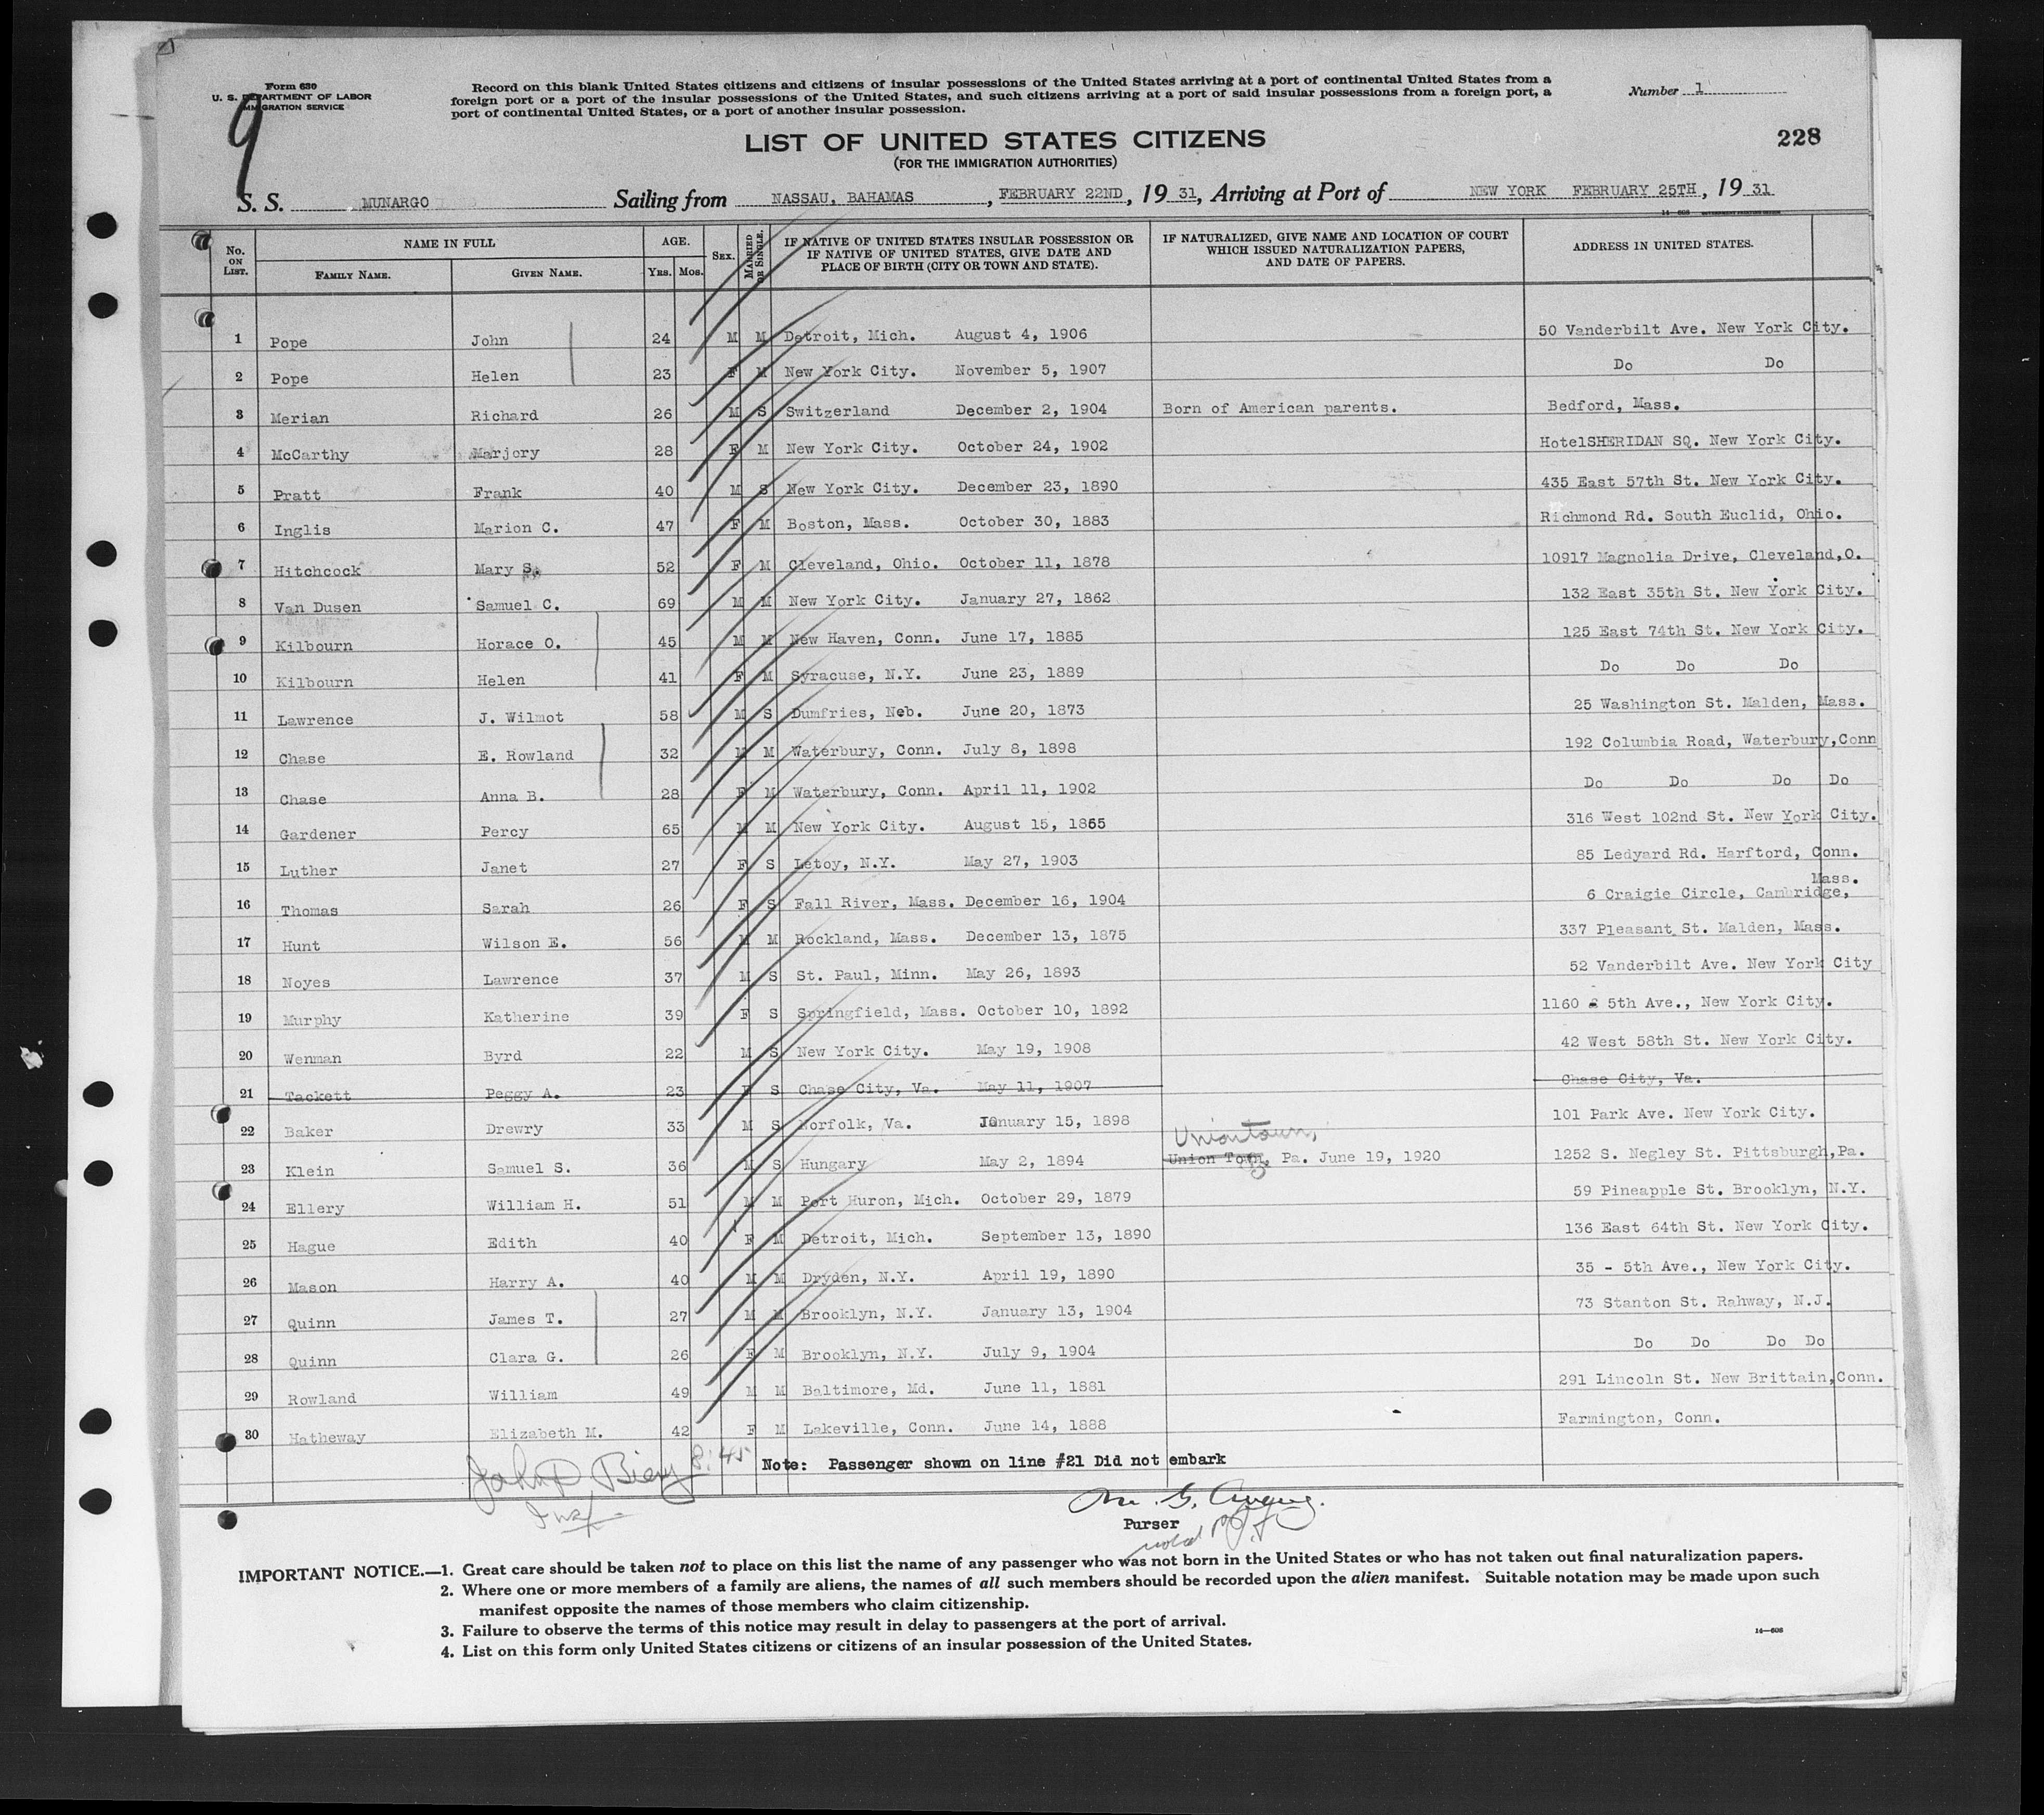 Form 630
U. S. DEPARTMENT OF LABOR
IMMIGRATION SERVICE
9
Record on this blank United States citizens and citizens of insular possessions of the United States arriving at a port of continental United States from a
foreign port or a port of the insular possessions of the United States, and such citizens arriving at a port of said insular possessions from a foreign port, a
port of continental United States, or a port of another insular possession.
Number 1
228
LIST OF UNITED STATES CITIZENS
(FOR THE IMMIGRATION AUTHORITIES)
S. S. MUNARGO Sailing from NASSAU, BAHAMAS, FEBRUARY 22ND, 19 31, Arriving at Port of NEW YORK FEBRUARY 25TH, 19 31
No. ON LIST. NAME IN FULL FAMILY NAME. GIVEN NAME. AGE. YRS. MOS. SEX. MARRIED OR SINGLE. IF NATIVE OF UNITED STATES INSULAR POSSESSION OR IF NATIVE OF UNITED STATES, GIVE DATE AND PLACE OF BIRTH (CITY OR TOWN AND STATE). IF NATURALIZED, GIVE NAME AND LOCATION OF COURT WHICH ISSUED NATURALIZATION PAPERS, AND DATE OF PAPERS. ADDRESS IN UNITED STATES.
1 Pope John 24 M M Detroit, Mich. August 4, 1906 50 Vanderbilt Ave. New York City.
2 Pope Helen 23 F M New York City. November 5, 1907 Do Do
3 Merian Richard 26 M S Switzerland December 2, 1904 Born of American parents. Bedford, Mass.
4 McCarthy Marjory 28 F M New York City. October 24, 1902 HotelSHERIDAN SQ. New York City.
5 Pratt Frank 40 M S New York City. December 23, 1890 435 East 57th St. New York City.
6 Inglis Marion C. 47 F M Boston, Mass. October 30, 1883 Richmond Rd. South Euclid, Ohio.
7 Hitchcock Mary S. 52 F M Cleveland, Ohio. October 11, 1878 10917 Magnolia Drive, Cleveland,O.
8 Van Dusen Samuel C. 69 M M New York City. January 27, 1862 132 East 35th St. New York City.
9 Kilbourn Horace O. 45 M M New Haven, Conn. June 17, 1885 125 East 74th St. New York City.
10 Kilbourn Helen 41 F M Syracuse, N.Y. June 23, 1889 Do Do Do
11 Lawrence J. Wilmot 58 M S Dumfries, Neb. June 20, 1873 25 Washington St. Malden, Mass.
12 Chase E. Rowland 32 M M Waterbury, Conn. July 8, 1898 192 Columbia Road, Waterbury,Conn
13 Chase Anna B. 28 F M Waterbury, Conn. April 11, 1902 Do Do Do Do
14 Gardener Percy 65 M M New York City. August 15, 1865 316 West 102nd St. New York City.
15 Luther Janet 27 F S Letoy, N.Y. May 27, 1903 85 Ledyard Rd. Harftord, Conn.
16 Thomas Sarah 26 F S Fall River, Mass. December 16, 1904 6 Craigie Circle, Cambridge, Mass.
17 Hunt Wilson E. 56 M M Rockland, Mass. December 13, 1875 337 Pleasant St. Malden, Mass.
18 Noyes Lawrence 37 M S St. Paul, Minn. May 26, 1893 52 Vanderbilt Ave. New York City
19 Murphy Katherine 39 F S Springfield, Mass. October 10, 1892 1160 5th Ave., New York City.
20 Wenman Byrd 22 M S New York City. May 19, 1908 42 West 58th St. New York City.
21 Tackett Peggy A. 23 F S Chase City, Va. May 11, 1907 Chase City, Va.
22 Baker Drewry 33 M S Norfolk, Va. January 15, 1898 101 Park Ave. New York City.
Uniontown,
23 Klein Samuel S. 36 M S Hungary May 2, 1894 Union Town, Pa. June 19, 1920 1252 S. Negley St. Pittsburgh,Pa.
24 Ellery William H. 51 M M Port Huron, Mich. October 29, 1879 59 Pineapple St. Brooklyn, N.Y.
25 Hague Edith 40 F M Detroit, Mich. September 13, 1890 136 East 64th St. New York City.
26 Mason Harry A. 40 M M Dryden, N.Y. April 19, 1890 35 - 5th Ave., New York City.
27 Quinn James T. 27 M M Brooklyn, N.Y. January 13, 1904 73 Stanton St. Rahway, N.J.
28 Quinn Clara G. 26 F M Brooklyn, N.Y. July 9, 1904 Do Do Do Do
29 Rowland William 49 M M Baltimore, Md. June 11, 1881 291 Lincoln St. New Brittain,Conn.
30 Hatheway Elizabeth M. 42 F M Lakeville, Conn. June 14, 1888 Farmington, Conn.
8:45 Note: Passenger shown on line #21 Did not embark
Purser
IMPORTANT NOTICE.—1. Great care should be taken not to place on this list the name of any passenger who was not born in the United States or who has not taken out final naturalization papers.
2. Where one or more members of a family are aliens, the names of all such members should be recorded upon the alien manifest. Suitable notation may be made upon such
manifest opposite the names of those members who claim citizenship.
3. Failure to observe the terms of this notice may result in delay to passengers at the port of arrival.
4. List on this form only United States citizens or citizens of an insular possession of the United States.
14—608